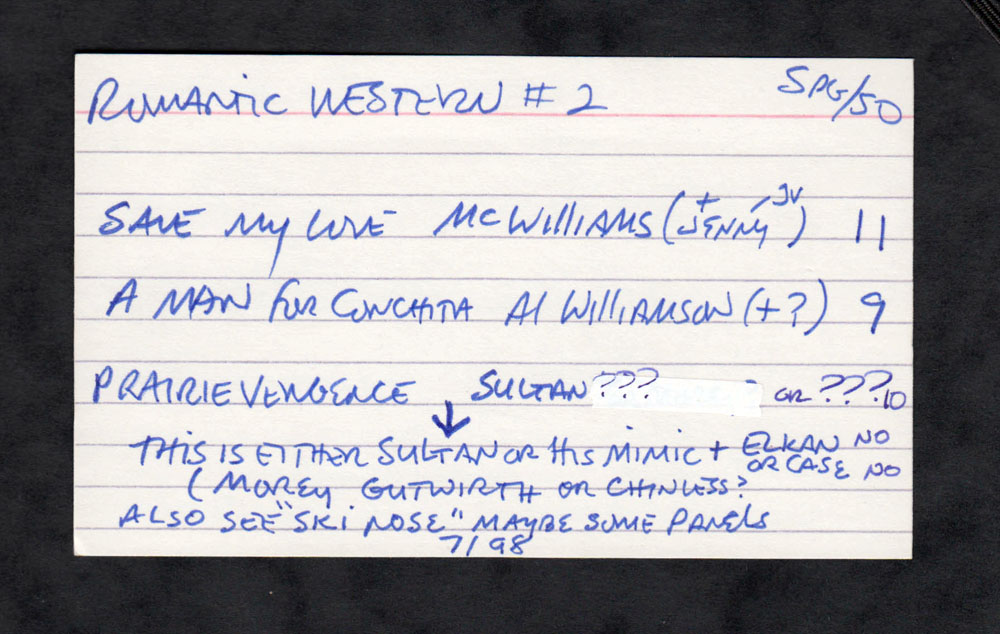 ROMANTIC WESTERN # 2 SPG/50
SAVE MY LOVE MCWILLIAMS (+ JENNY JV) 11
A MAN FOR CONCHITA Al WILLIAMSON (+?) 9
PRAIRIE VENGENCE SULTAN ??? OR ??? 10
THIS IS EITHER SULTAN OR HIS MIMIC + ELKAN NO
OR CASE NO
(MOREY GUTWIRTH OR CHINLESS?
ALSO SEE "SKI NOSE" MAYBE SOME PANELS
7/98